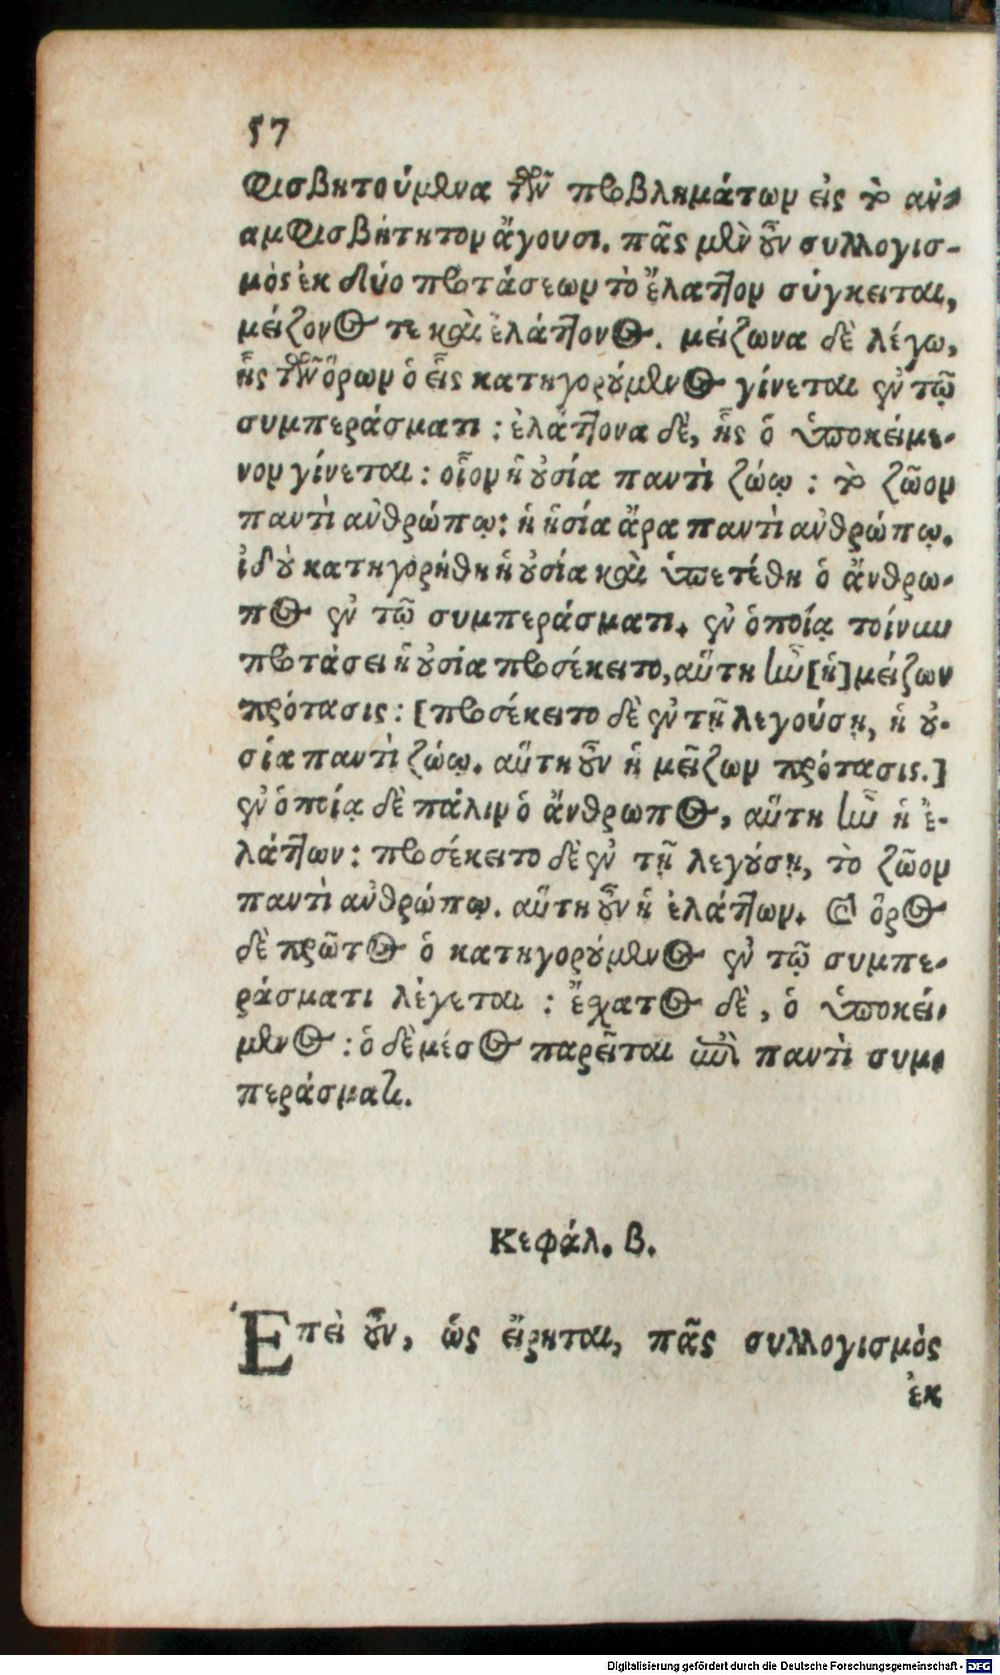 57
φισβητούμενα τῶν προβλημάτων εἰς τὸ ἀν-
αμφισβήτητον ἄγουσι. πᾶς μὲν οὖν συλλογισ-
μὸς ἐκ δύο προτάσεων τὸ ἔλαττον σύγκειται,
μείζονος τε καὶ ἐλάττονος. μείζωνα δὲ λέγω,
ἧς τῶν ὅρων ὁ εἷς κατηγορούμενος γίνεται ἐν τῷ
συμπεράσματι : ἐλάττονα δὲ, ἧς ὁ ὑποκείμε-
νον γίνεται : οἷον ἡ οὐσία παντὶ ζώῳ : τὸ ζῶον
παντὶ ἀνθρώπῳ : ἡ ἠσία ἄρα παντὶ ἀνθρώπῳ.
ἰδοὺ κατηγορήθη ἡ οὐσία καὶ ὑπετέθη ὁ ἄνθρω-
πος ἐν τῷ συμπεράσματι. ἐν ὁποίᾳ τοίνυν
προτάσει ἡ οὐσία προσέκειτο, αὕτη ἦν [ἡ] μείζων
πρότασις : [προσέκειτο δὲ ἐν τῇ λεγούσῃ, ἡ οὐ-
σία παντὶ ζώῳ. αὕτη οὖν ἡ μεῖζων πρότασις.]
ἐν ὁποίᾳ δὲ πάλιν ὁ ἄνθρωπος, αὕτη ἦν ἡ ἐ-
λάττων : προσέκειτο δὲ ἐν τῇ λεγούσῃ, τὸ ζῶον
παντὶ ἀνθρώπῳ. αὕτη οὖν ἡ ἐλάττων. ὅρος
δὲ πρῶτος ὁ κατηγορούμενος ἐν τῷ συμπε-
ράσματι λέγεται : ἔσχατος δὲ, ὁ ὑποκεί-
μενος : ὁ δὲ μέσος παρεῖται ἐπὶ παντὶ συμ-
περάσματι.
Κεφάλ. β.
Ἐπεὶ οὖν, ὡς εἴρηται, πᾶς συλλογισμὸς
ἐκ
Digitalisierung gefördert durch die Deutsche Forschungsgemeinschaft - DFG